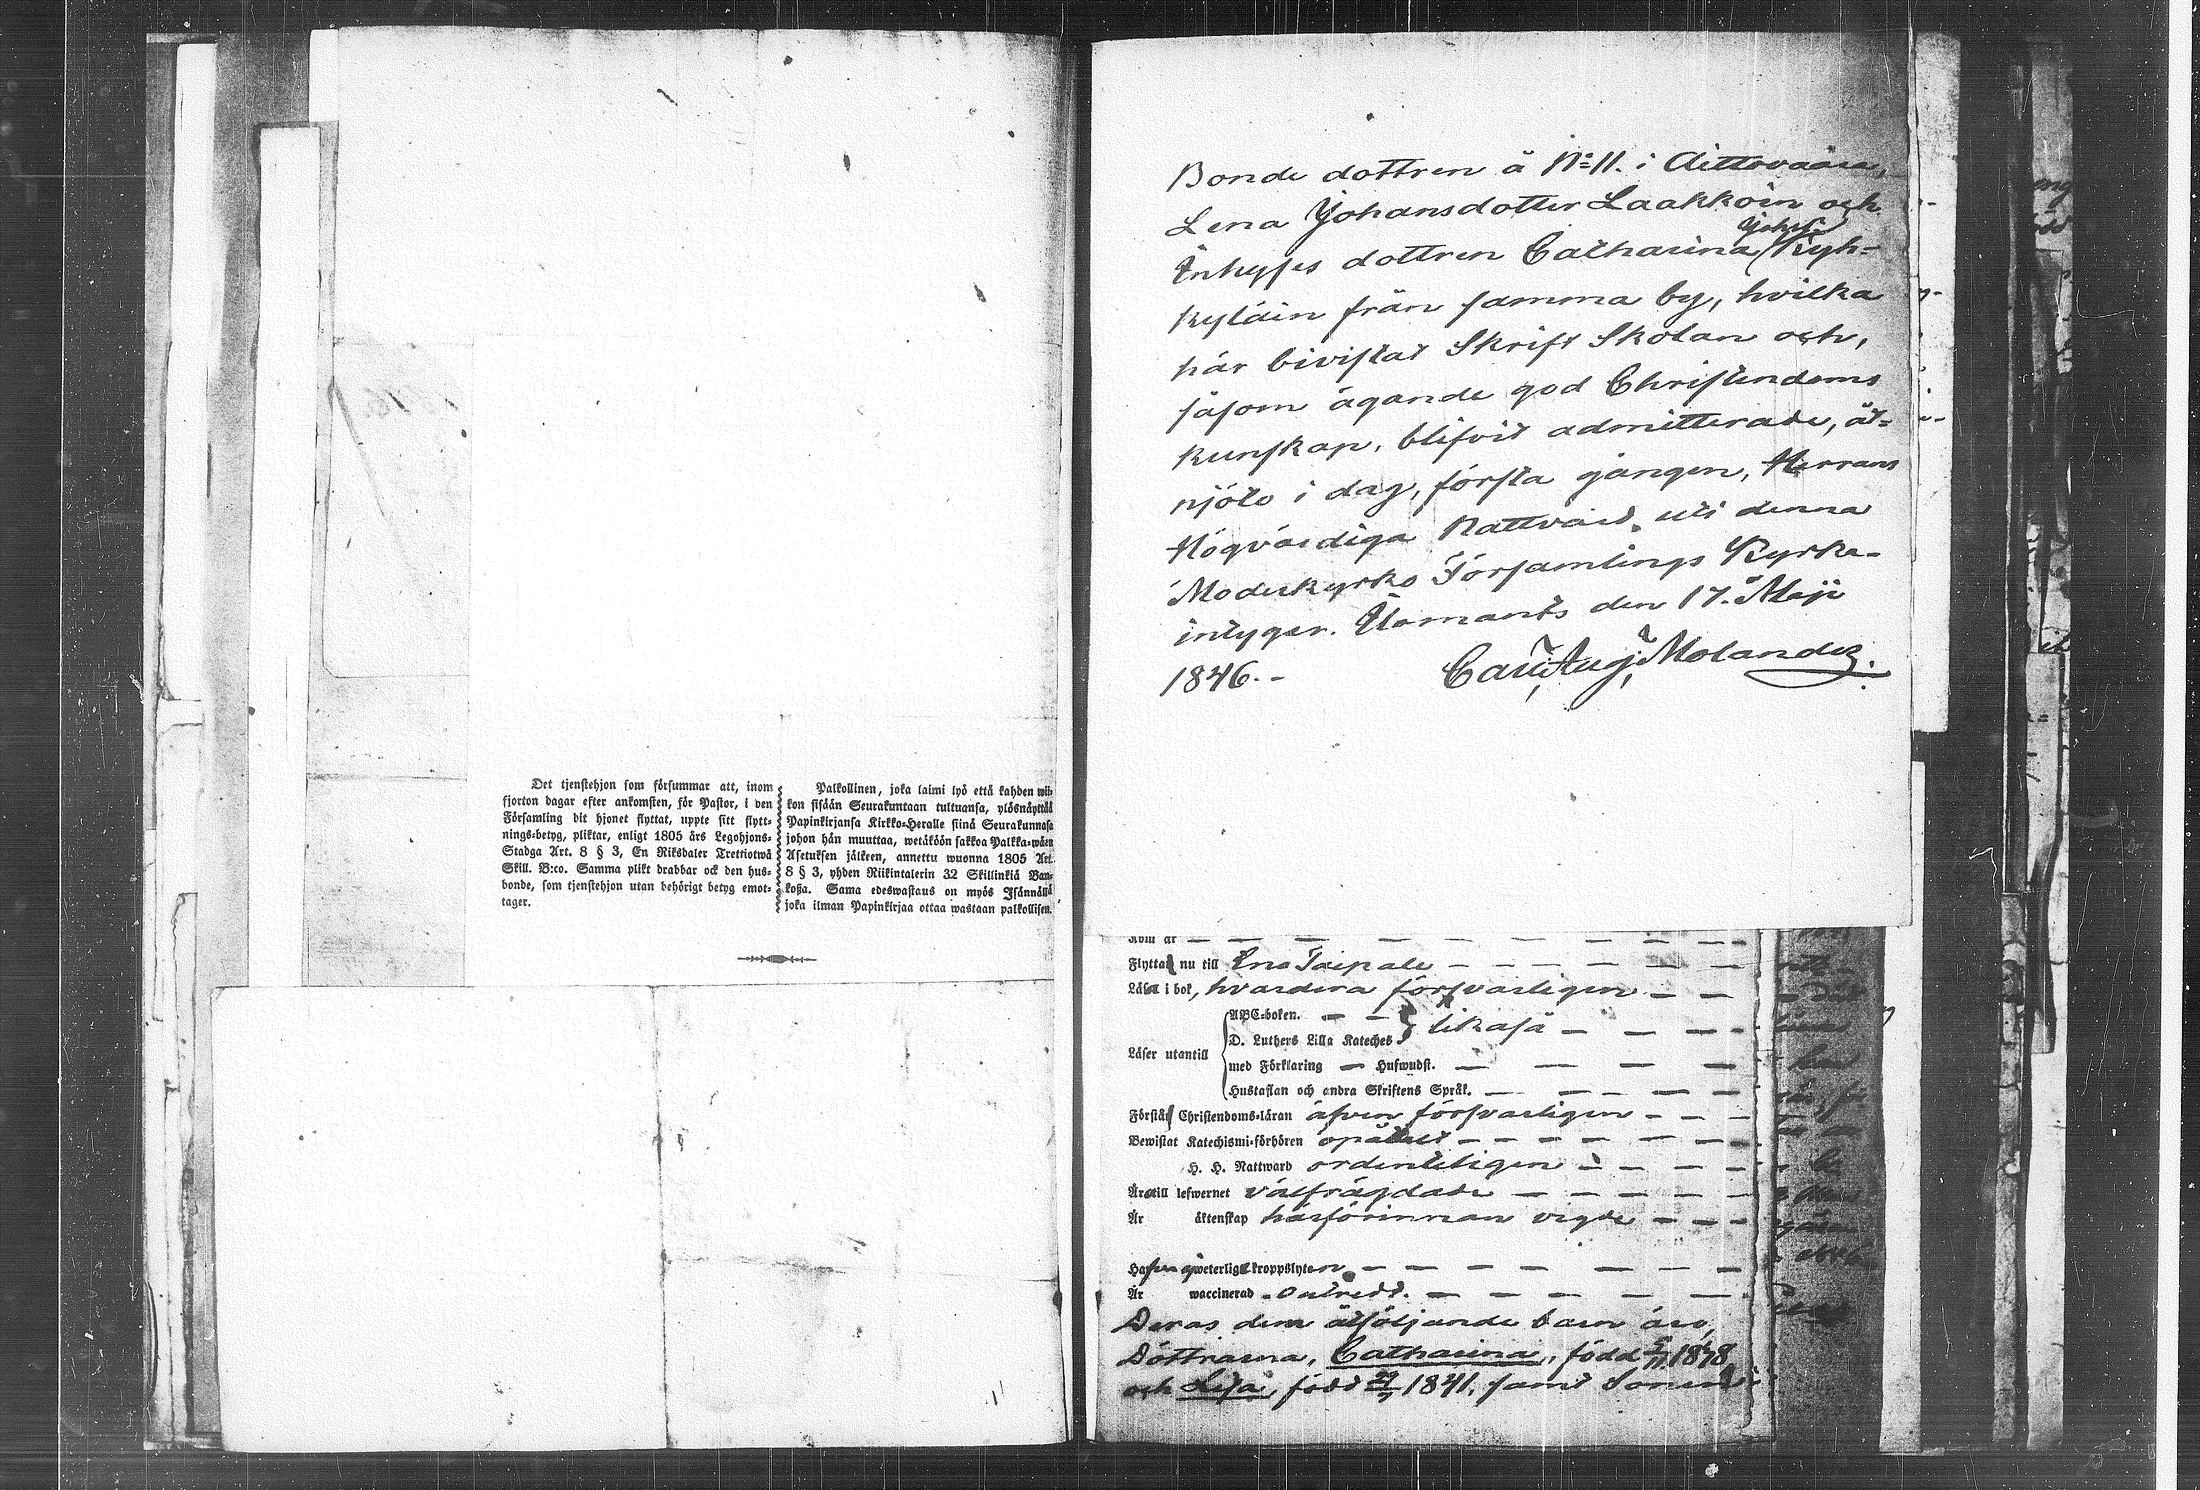 Det tjenstehjon som försummar att, inom
fjorton dagar efter ankomsten, för Pastor, i den
Församling dit hjonet flyttat, uppte sitt flytt-
nings-betyg, pliktar, enligt 1805 års Legohjons-
Stadga Art. 8 § 3, En Riksdaler Trettiotwå
Skill. B:co. Samma plikt drabbar ock den hus-
bonde, som tjenstehjon utan behörigt betyg emot-
tager.
Palkollinen, joka laimi lyö että kahden wii-
kon sisään Seurakuntaan tultuansa, ylösnäyttää
Papinkirjansa Kirkko-Heralle siinä Seurakunnasa
johon hän muuttaa, wetäköön sakkoa Palkka-wäen
Asetuksen jälkeen, annettu wuonna 1805 Art.
8 § 3, yhden Riikintalerin 32 Skillinkiä Ban-
koßa. Sama edeswastaus on myös Isännällä
joka ilman Papinkirjaa ottaa wastaan palkollisen.
Bonde dottren å N:o 11. i Aittovaara,
Lena Johansdotter Laakkoin och
Inhyses dottren Catharina Johsdr Kyh-
kyläin från samma by, hvilka
här bivistat Skrift Skolan och,
såsom ägande god Christendoms
kunskap, blifvit admitterade, åt-
njöto i dag, första gången, Herrans
Högvärdiga Nattvard uti denna
Moderkyrko Församlings Kyrka.
intygar. Ilomants den 17. Maji
1846.- Carl Aug. Molander.
Kom år
Flyttar nu till Eno Taipale
Läsa i bok, hvardera försvarligen
ABC-boken.
D. Luthers Lilla Kateches likaså
Läser utantill
med Förklaring Hufwudst.
Hustaflan och andra Skriftens Språk.
Förstår Christendoms-läran äfven försvarligen
Bewistat Katechismi-förhören opåtalt
H. H. Nattward ordentligen
Äro till lefwernet välfrägdade
Är äktenskap härförinnan vigde
Hafva ej weterliga kroppslyten
Är waccinerad outredt.
Deras dem åtföljande barn äro,
Döttrarna, Catharina, född 5/11 1838
och Lisa, född 29/7 1841, samt Sonen